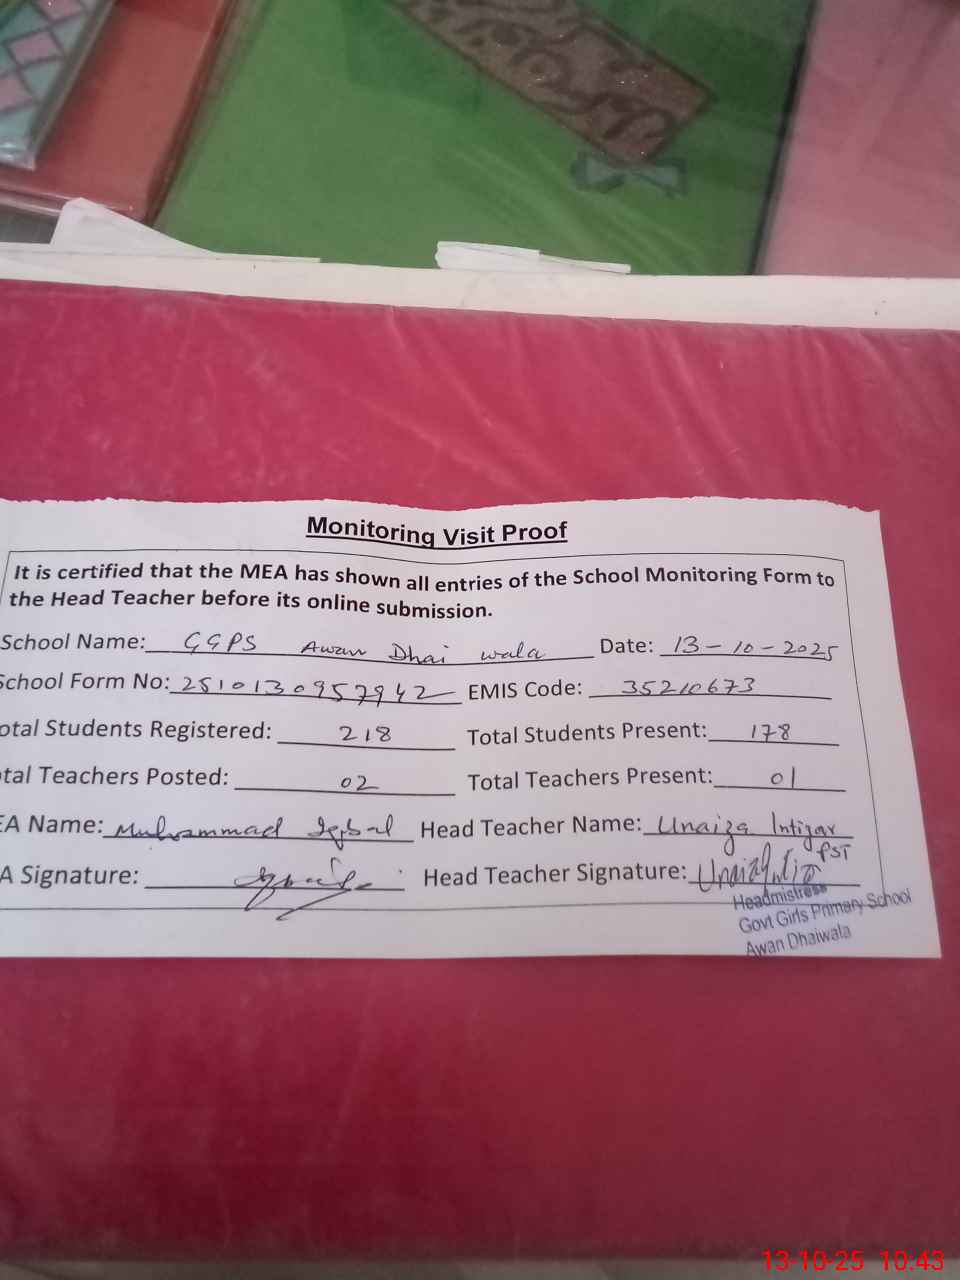 Monitoring Visit Proof
It is certified that the MEA has shown all entries of the School Monitoring Form to
the Head Teacher before its online submission.
School Name: GGPS Awan Dhai wala Date: 13-10-2025
School Form No: 2510130957942 EMIS Code: 35210673
otal Students Registered: 218 Total Students Present: 178
tal Teachers Posted: 02 Total Teachers Present: 01
EA Name: Muhammad Iqbal Head Teacher Name: Unaiza Intizar
PST
A Signature: Head Teacher Signature:
Headmistress
Govt Girls Primary School
Awan Dhaiwala
13-10-25 10:43